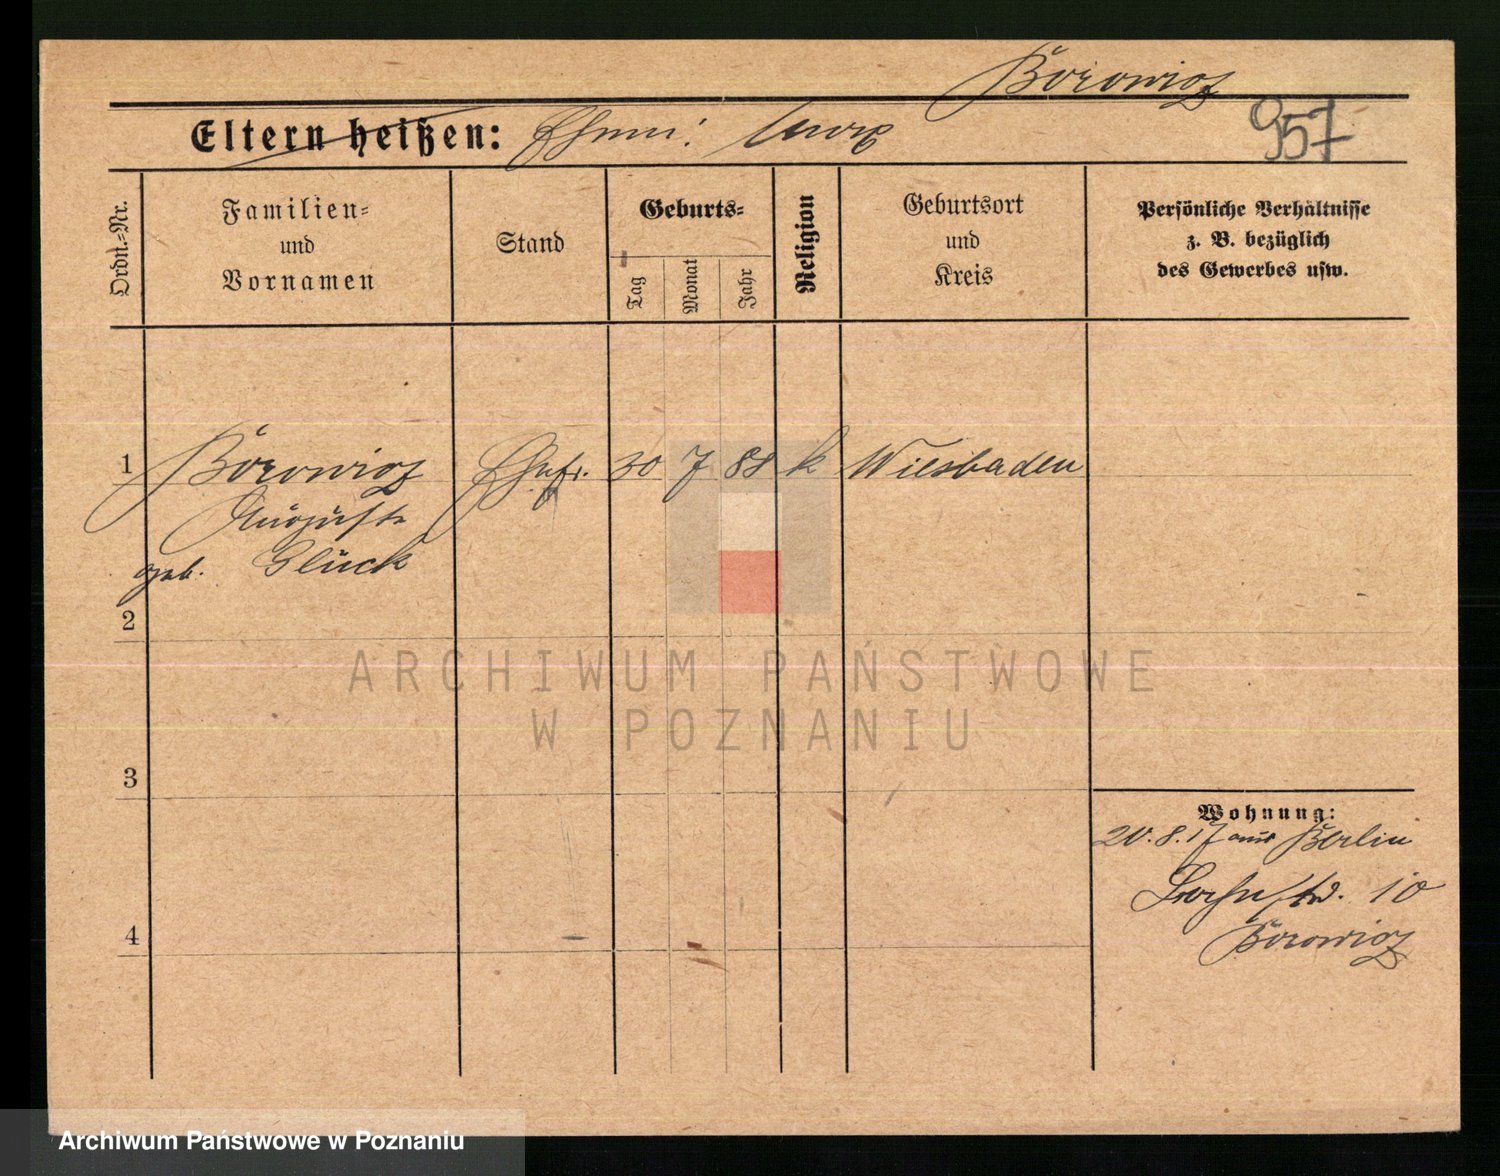 Borowicz
Eltern heißen: Ehem: Marx
957
Ordn.-Nr.
Familien-
und
Vornamen
Stand
Geburts-
Tag
Monat
Jahr
Religion
Geburtsort
und
Kreis
Persönliche Verhältnisse
z. B. bezüglich
des Gewerbes usw.
1
Borowicz Ehefr. 30 7 88 k Wiesbaden
Auguste
geb. Glück
2
ARCHIWUM PAŃSTWOWE
W POZNANIU
3
Wohnung:
20.8.17 aus Berlin
10
Borowicz
4
Archiwum Państwowe w Poznaniu